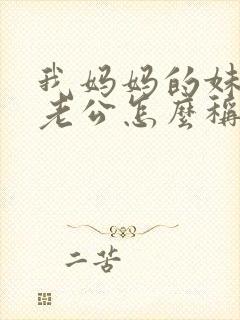 我妈妈的妹
老公怎麼稱
二苦